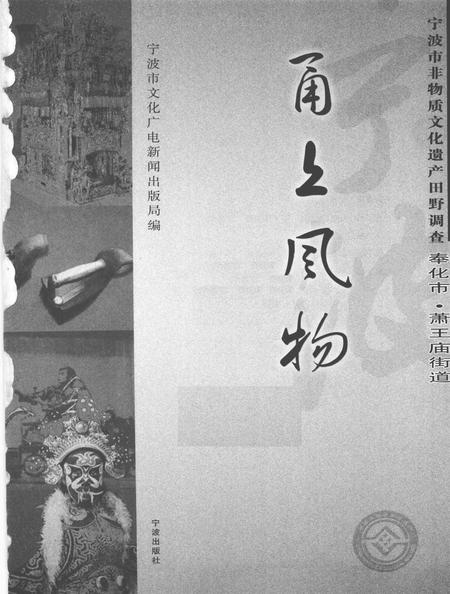 宁波市非物质文化遗产田野调查
奉化市·萧王庙街道
甬上风物
宁波市文化广电新闻出版局编
宁波出版社